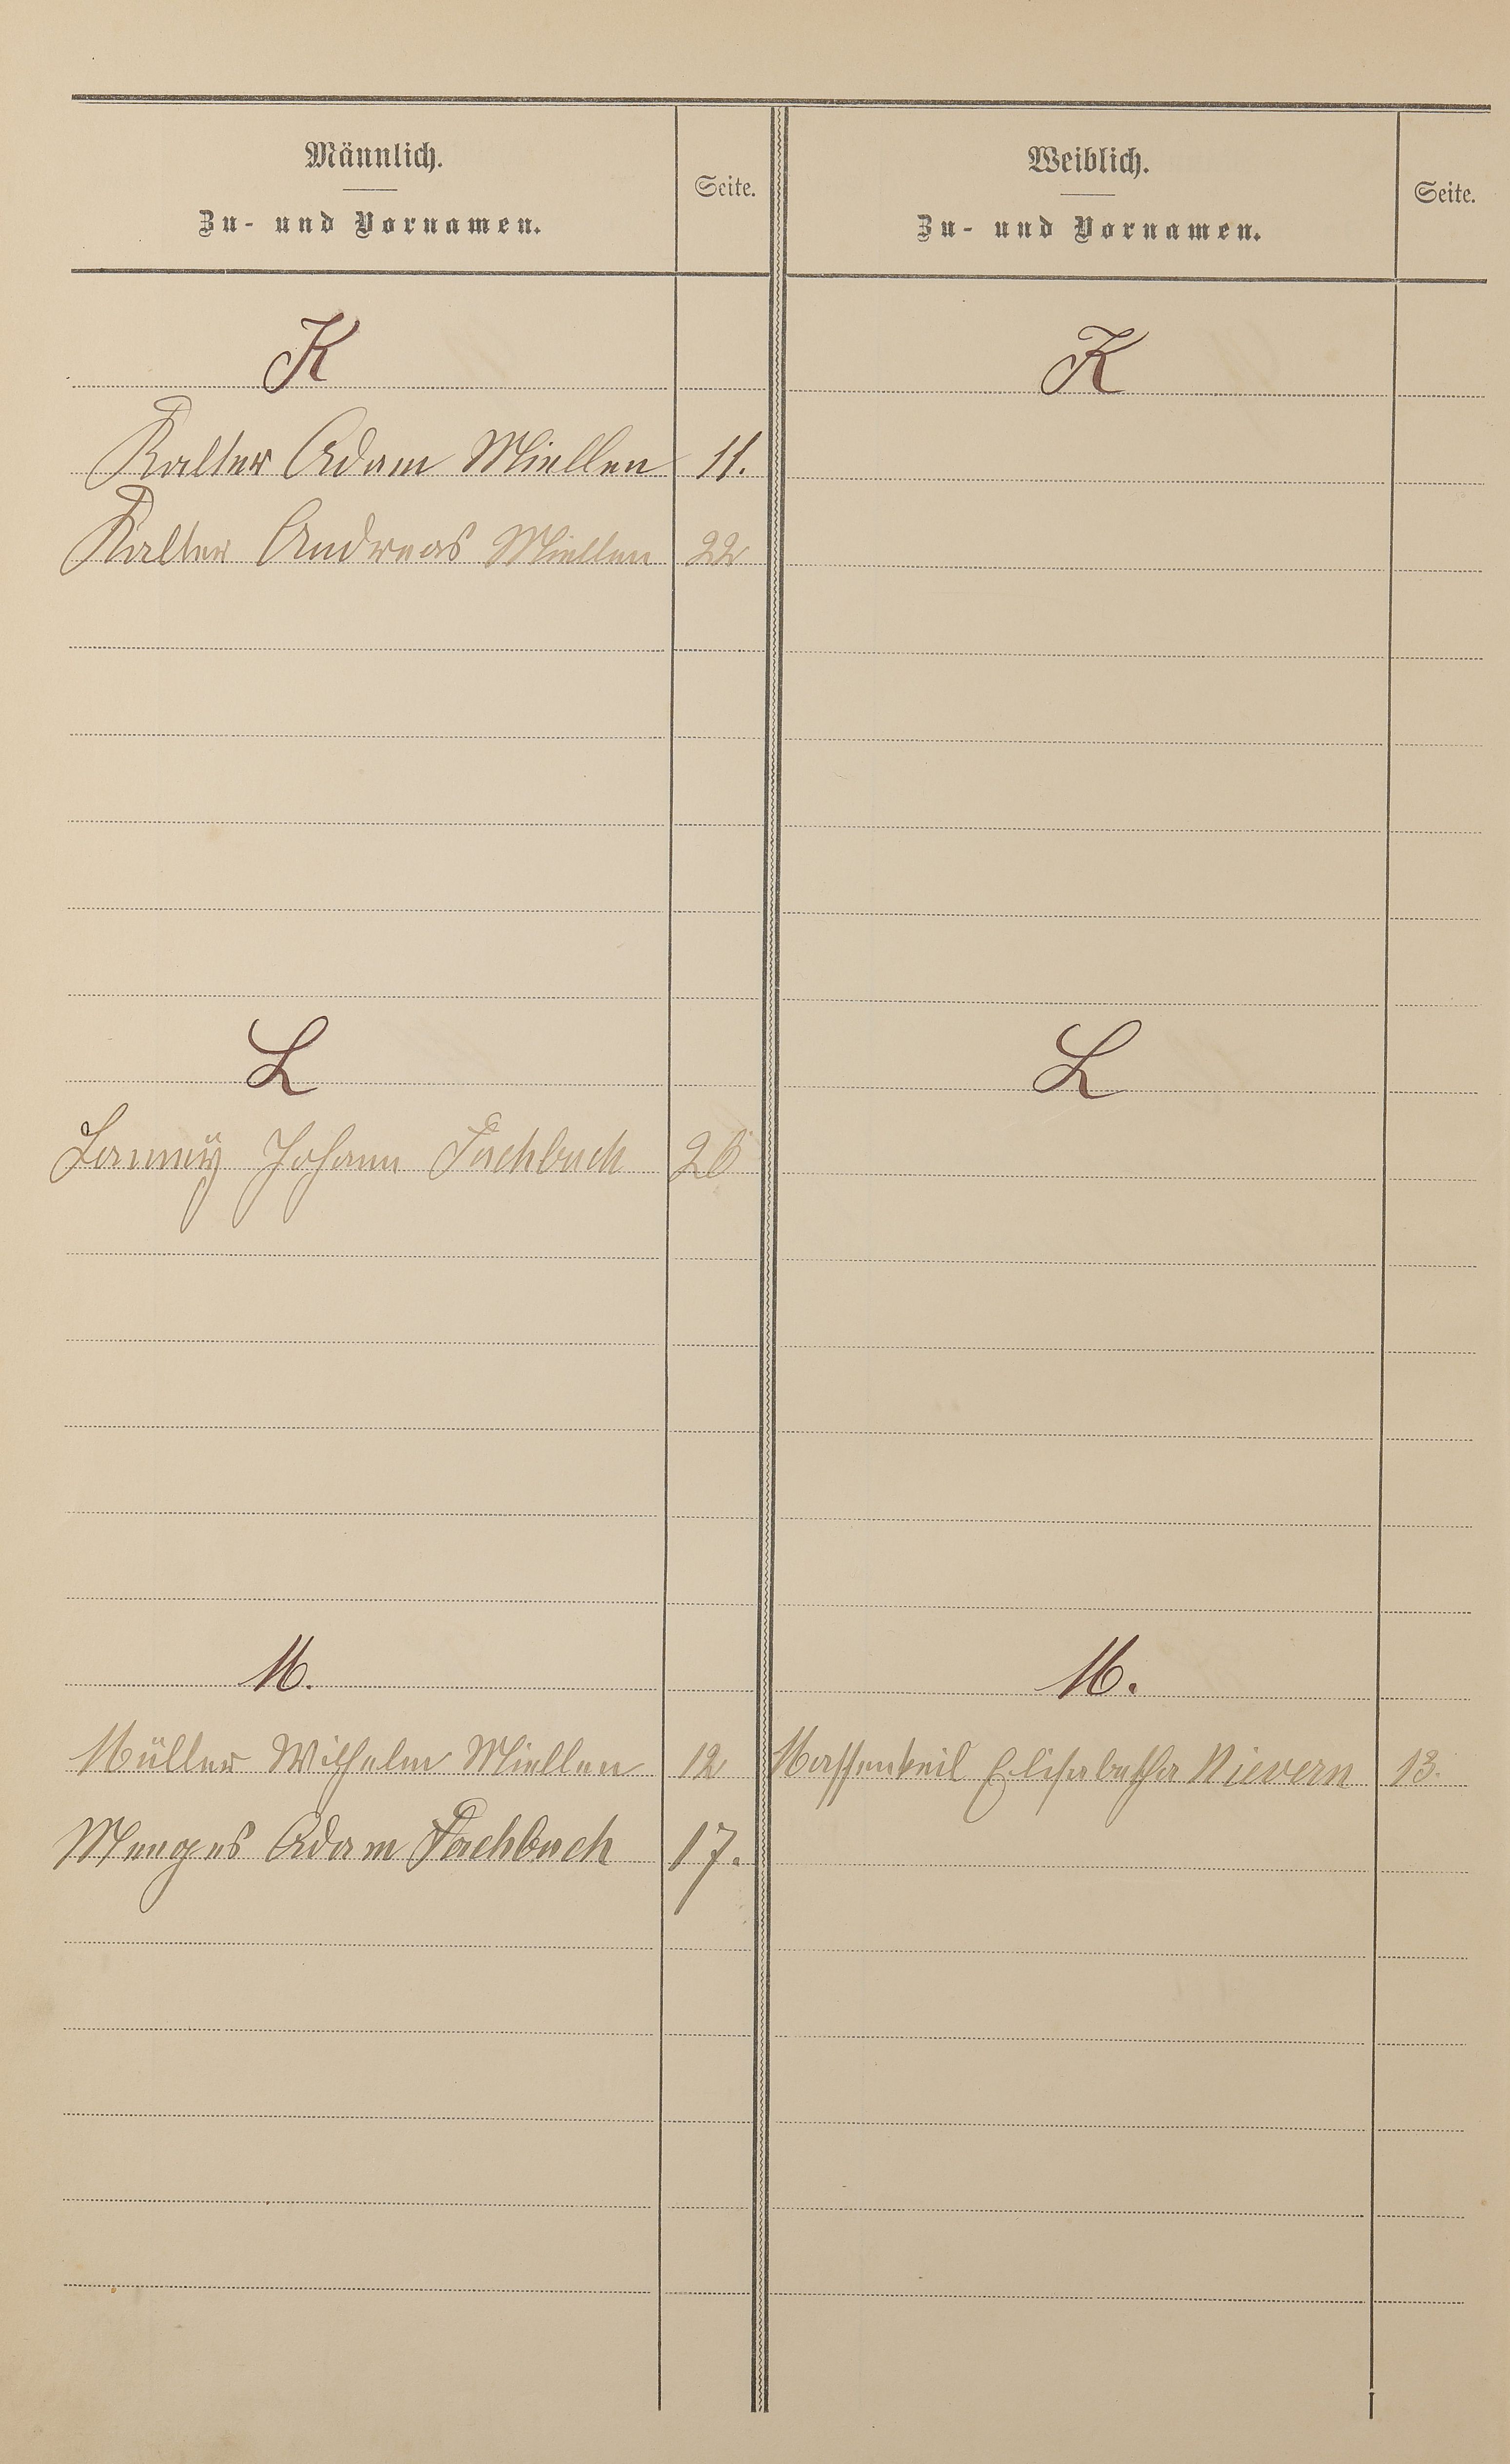 Männlich.
Zu- und Vornamen.
Seite.
Weiblich.
Zu- und Vornamen.
Seite.
K
K
Kalter Adam Miellen 11.
Kalter Andreas Miellen 22
L
L
Johann Fachbach
M.
M.
Müller Wilhelm Miellen 12
Massenkeil Elisabetha Nievern 13.
Menges Adam Fachbach 17.